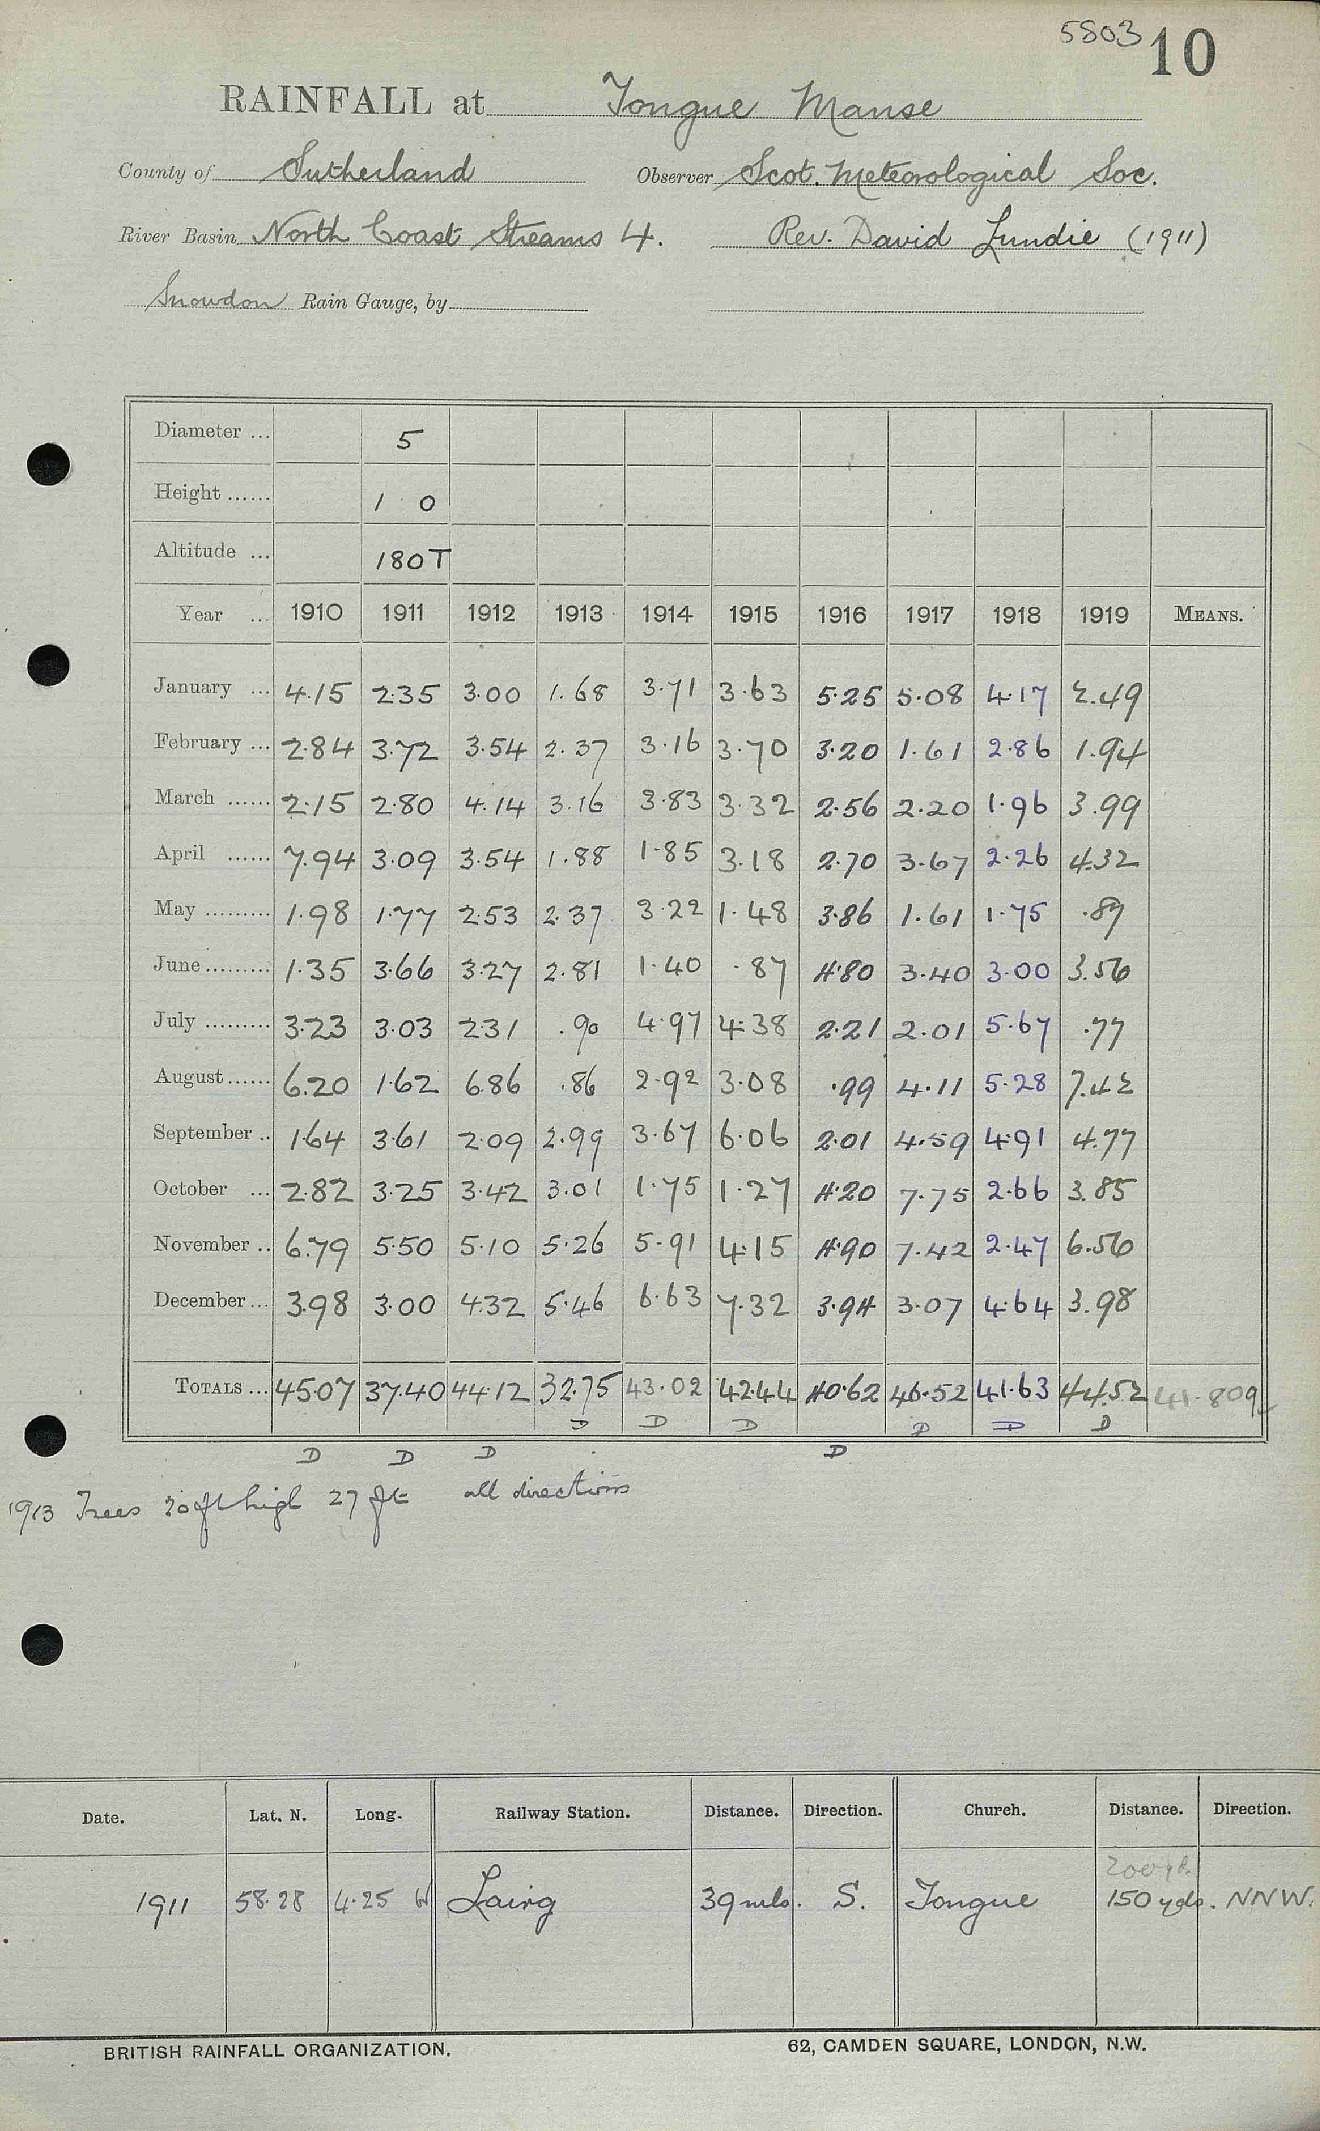 5803 10
RAINFALL at Tongue Manse
County of Sutherland Observer Scot. Meteorological Soc.
River Basin North Coast Streams 4. Rev. David Lundie (1911)
Snowdon Rain Gauge, by
Diameter ... 5
Height ...... 1 0
Altitude ... 180T
Year ... 1910 1911 1912 1913 1914 1915 1916 1917 1918 1919 MEANS.
January ... 4.15 2.35 3.00 1.68 3.71 3.63 5.25 5.08 4.17 2.49
February ... 2.84 3.72 3.54 2.37 3.16 3.70 3.20 1.61 2.86 1.94
March ...... 2.15 2.80 4.14 3.16 3.83 3.32 2.56 2.20 1.96 3.99
April ...... 7.94 3.09 3.54 1.88 1.85 3.18 2.70 3.67 2.26 4.32
May ......... 1.98 1.77 2.53 2.37 3.22 1.48 3.86 1.61 1.75 .89
June ......... 1.35 3.66 3.27 2.81 1.40 .87 4.80 3.40 3.00 3.56
July ......... 3.23 3.03 2.31 .90 4.97 4.38 2.21 2.01 5.67 .77
August ...... 6.20 1.62 6.86 .86 2.92 3.08 .99 4.11 5.28 7.42
September .. 1.64 3.61 2.09 2.99 3.67 6.06 2.01 4.59 4.91 4.77
October ... 2.82 3.25 3.42 3.01 1.75 1.27 4.20 7.75 2.66 3.85
November .. 6.79 5.50 5.10 5.26 5.91 4.15 4.90 7.42 2.47 6.56
December ... 3.98 3.00 4.32 5.46 6.63 7.32 3.94 3.07 4.64 3.98
TOTALS ... 45.07 37.40 44.12 32.75 43.02 42.44 40.62 46.52 41.63 44.52 41.809
D D D D D D D D D D
1913 Trees 20 ft high 27 ft all directions
Date. Lat. N. Long. Railway Station. Distance. Direction. Church. Distance. Direction.
200yd.
1911 58.28 4.25 W Lairg 39 mls. S. Tongue 150 yds. NNW.
BRITISH RAINFALL ORGANIZATION. 62, CAMDEN SQUARE, LONDON, N.W.